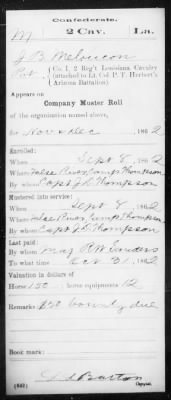 Confederate.
M | 2 Cav. | La.
J B Meloncon
Pvt, (Co. I, 2 Reg't Louisiana Cavalry
(attached to Lt. Col. P. T. Herbert's
Arizona Battalion)
Appears on
Company Muster Roll
of the organization named above,
for Nov & Dec, 1862
Enrolled:
When Sept 8, 1862
Where False River, Camp Thompson
By whom Capt J D Thompson
Mustered into service:
When Sept 8, 1862
Where False River, Camp Thompson
By whom Capt J D Thompson
Last paid:
By whom Maj R W Sanders
To what time Oct 31, 1862
Valuation in dollars of
Horse 150; horse equipments 12
Remarks: $50 bounty due
Book mark:
Barton
(642) Copyist.